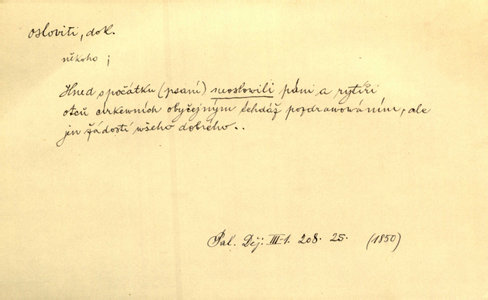 osloviti, dok.
někoho ;
Hned s počátku (psaní) neoslovili páni a rytíři
otců cirkewních obyčejným tehdáž pozdrawowáním, ale
jen žádostí wšeho dobrého..
Pal. Děj. III-1. 208. 25. (1850)